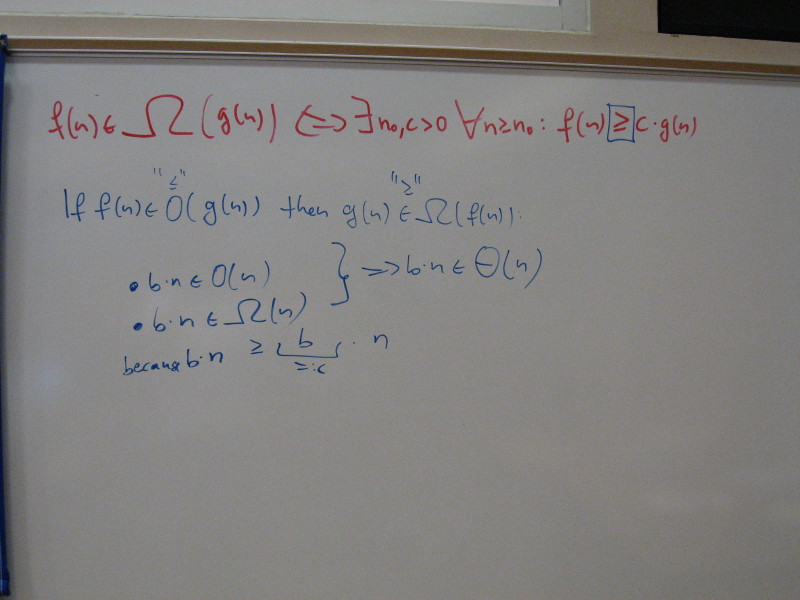 f(n) ∈ Ω(g(n)) ⟺ ∃ n₀, c > 0 ∀ n ≥ n₀ : f(n) ≥ c · g(n)
"≤" "≥"
If f(n) ∈ O(g(n)) then g(n) ∈ Ω(f(n)):
• b·n ∈ O(n) } ⟹ b·n ∈ Θ(n)
• b·n ∈ Ω(n)
because b·n ≥ b · n
=:c